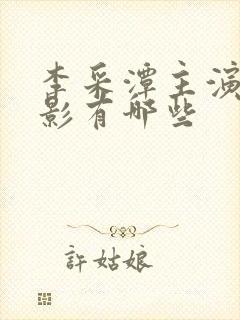 李采潭主演
影有哪些
許姑娘